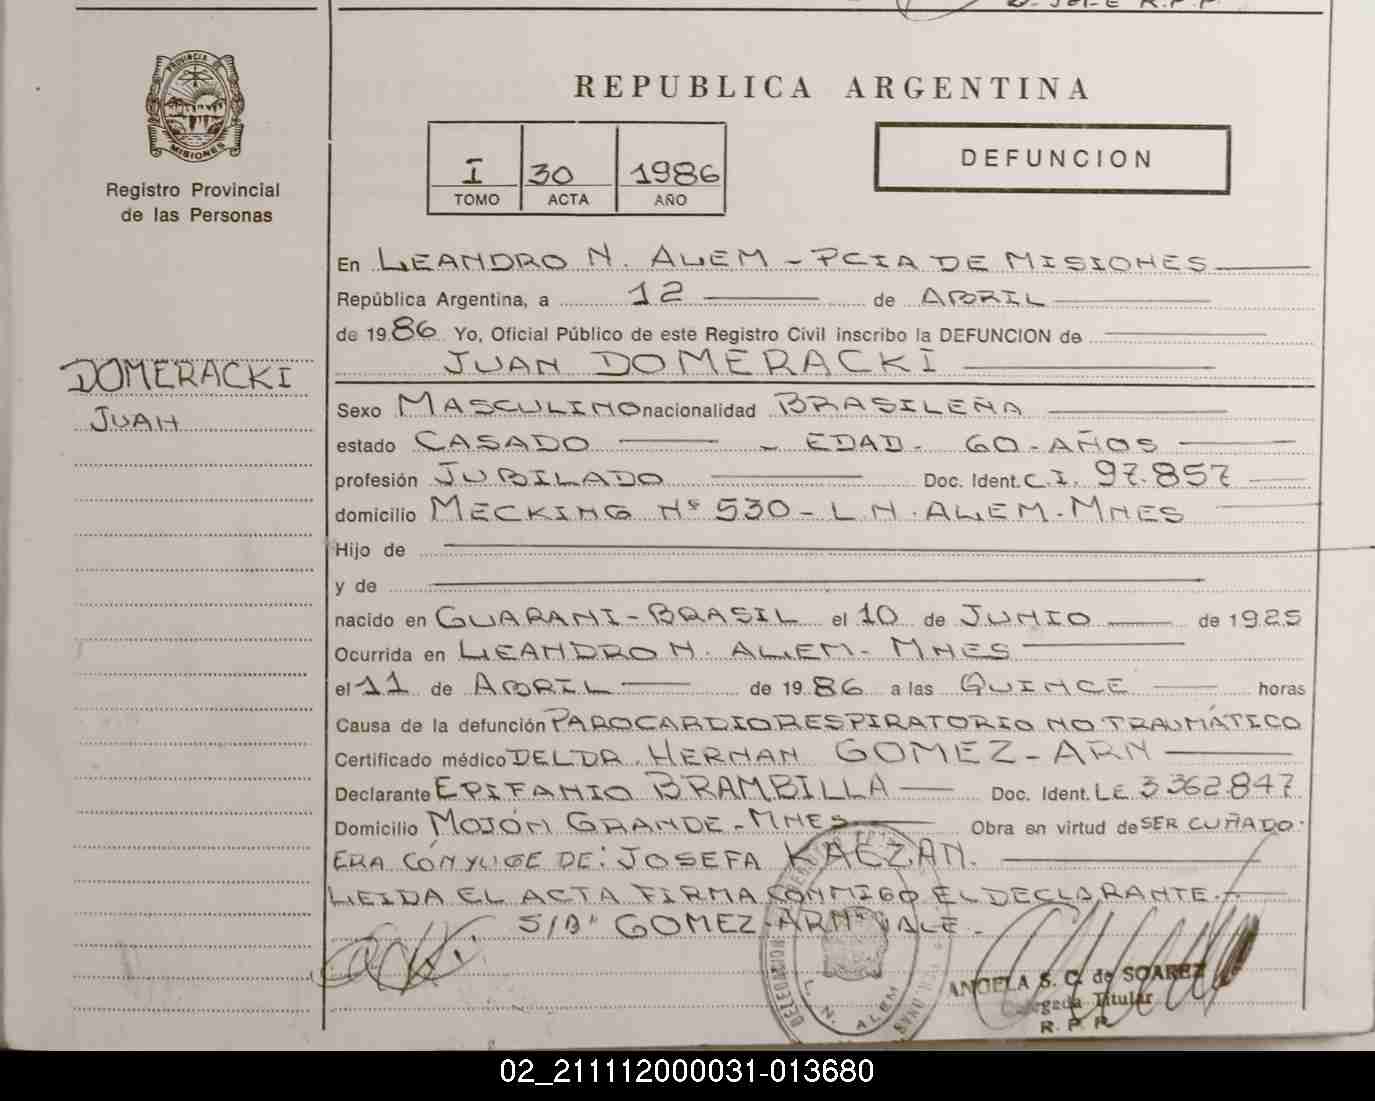 PROVINCIA DE
MISIONES
Registro Provincial
de las Personas
REPUBLICA ARGENTINA
I 30 1986
TOMO ACTA AÑO
DEFUNCION
En LEANDRO N. ALEM - PCIA DE MISIONES
República Argentina, a 12 de ABRIL
de 1986 Yo, Oficial Público de este Registro Civil inscribo la DEFUNCION de
JUAN DOMERACKI
DOMERACKI
JUAN
Sexo MASCULINO nacionalidad BRASILEÑA
estado CASADO - EDAD - 60 - AÑOS
profesión JUBILADO Doc. Ident. C.I. 97.857
domicilio MECKING Nº 530 - L.N. ALEM - MNES
Hijo de
y de
nacido en GUARANI - BRASIL el 10 de JUNIO de 1925
Ocurrida en LEANDRO N. ALEM - MNES
el 11 de ABRIL de 1986 a las QUINCE horas
Causa de la defunción PAROCARDIORESPIRATORIO NO TRAUMÁTICO
Certificado médico DEL DR. HERNAN GOMEZ - ARN
Declarante EPIFANIO BRAMBILLA Doc. Ident. L.E. 3.362.847
Domicilio MOJÓN GRANDE - MNES Obra en virtud de SER CUÑADO.
ERA CÓNYUGE DE: JOSEFA KACZAN.
LEIDA EL ACTA FIRMA CONMIGO EL DECLARANTE.-
S/Bº GOMEZ-ARNº VALE.-
L. N. ALEM
ANGELA S. C. de SOAREZ
Titular
R. P. P.
02_211112000031-013680